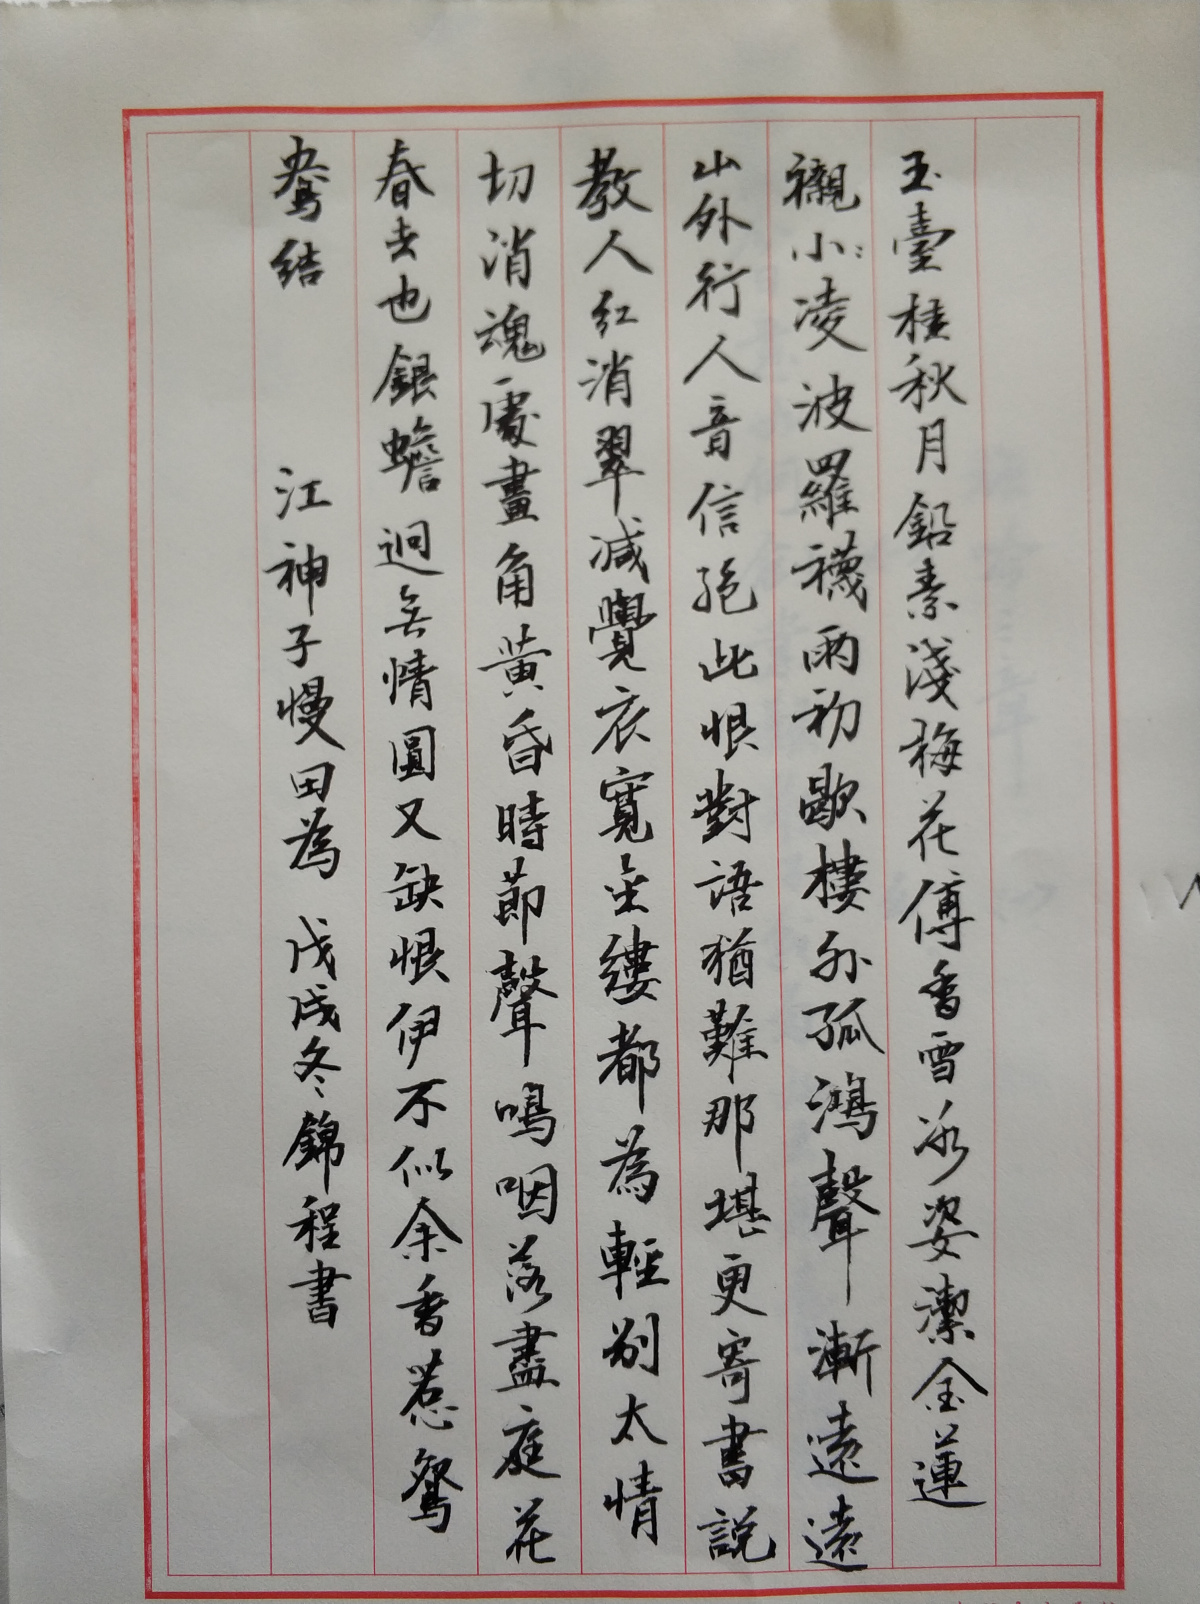 玉臺挂秋月鉛素淺梅花傅香雪冰姿潔金蓮
襯小〻凌波羅襪雨初歇樓外孤鴻聲漸遠遠
山外行人音信絕此恨對語猶難那堪更寄書說
教人紅消翠減覺衣寬金縷都為輕別太情
切消魂處畫角黃昏時節聲嗚咽落盡庭花
春去也銀蟾迥無情圓又缺恨伊不似余香惹鴛
鴦結 江神子慢田為 戊戌冬錦程書